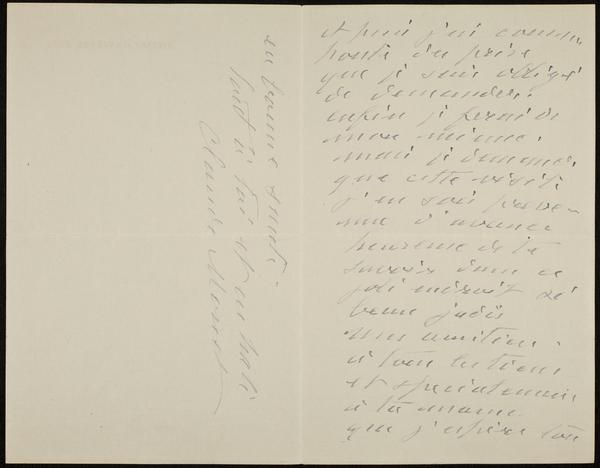 et puis j'ai
honte du prix
que je suis obligé
de demander.
enfin je ferai de
mon mieux.
mais je demande
que cette visite
j'en sois préve-
nu d'avance
heureux de te
savoir dans ce
joli endroit si
beau jadis
mes amitiés
à tous les tiens
et spécialement
à ta maman
que j'espère
en bonne santé
tout à toi et en hâte
Claude Monet